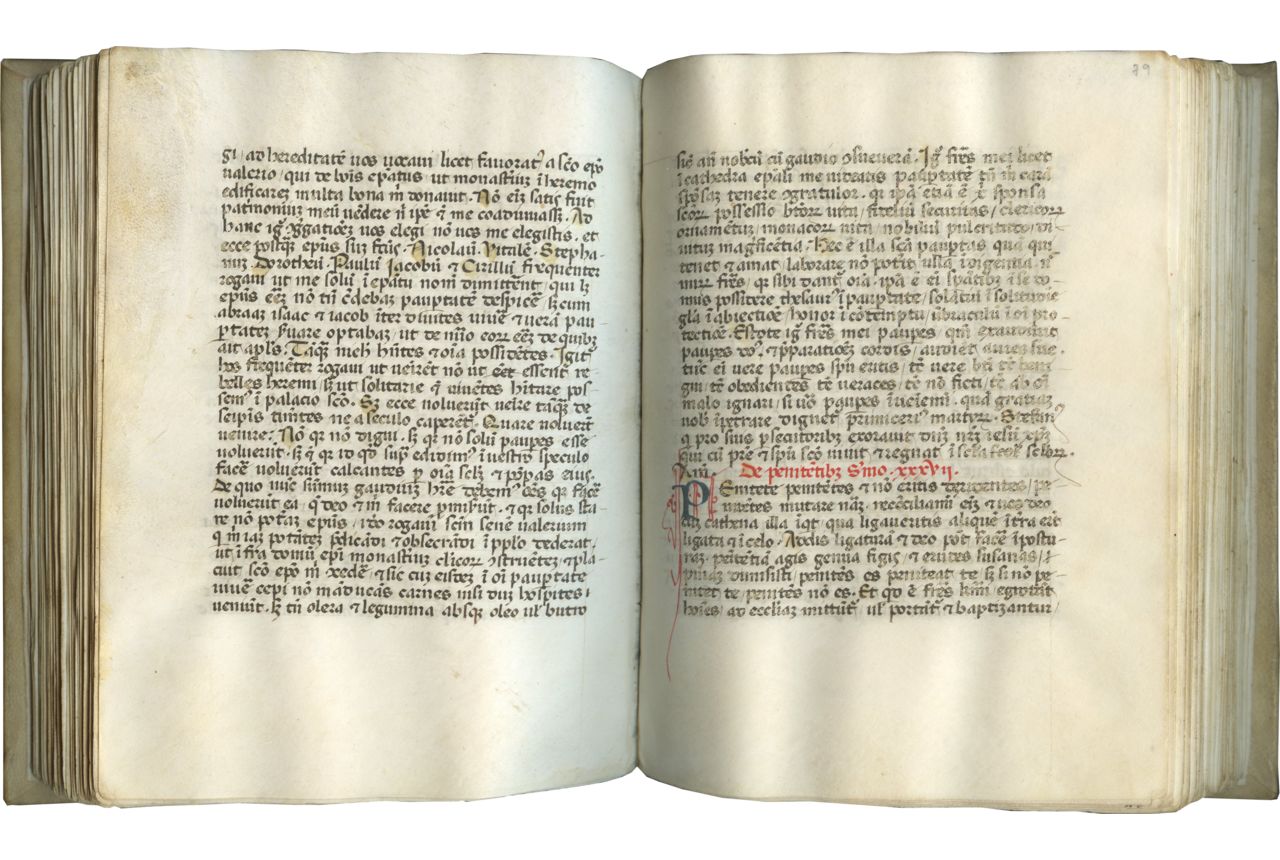 gi / ad hereditatē uos uocaui / licet fauorat᷒ a sc̄o ep̄o
ualerio / qui de bōis ep̄atus / ut monast̄iuꝫ ī heremo
edificareꝫ multa bona m̄ donauit . Nō eīꝫ satis fuit
pat̄moniuꝫ meū uēdere n̄ ip̄e q̄ me coaduuasꝫ . Ad
hanc ig̃ ꝯg̃gatiōeꝫ uos elegi nō uos me elegistis . et
ecce postꝙ̄ ep̄us suꝫ fc̄us / Nicolaū . Vitalē . Stepha-
nuꝫ . Dorotheū . Paulū Jacobū ⁊ Cirillū freq̄uenter
rogaui ut me solū ī ep̄atu nō m̄ dimittent / qui lꝫ
ep̄us eēꝫ nō tn̄ c̄debaꝫ pauptatē despicē sꝫ cum
abraaꝫ isaac ⁊ iacob īter diuites uiuē ⁊ uerā pau-
ptateꝫ ẜuare optabaꝫ / ut de nūio eoꝝ eēꝫ de quibꝫ
ait apl̄s . Taꝙ̄ nich h̄ntes ⁊ oīa possidētes . Igit᷒
hos freq̄uēter rogaui ut ueīrēt nō ut eēt essent re-
belles heremi sꝫ ut solitarie q̄ uiuētes h̄itare pos-
sem᷒ ī palacio sc̄o . Sꝫ ecce noluerūt ueīre taꝙ̄ de
seip̄is tīmtes ne a seculo caperēt᷒ . Quare noluerūt
uenire . Nō qꝛ nō digni . sꝫ qꝛ nō solū paupes esse
noluerūt . sꝫ q̄ qꝛ id qd̄ sup̄ edidim᷒ ī uestro speculo
facē noluerūt calcantes ꝑ oīa selꝫ ⁊ pōpas eius .
De quo nūc sūmuꝫ gaudiuꝫ h̄rē debem᷒ oēs qꝛ facē
noluerūt ea / q̄ deo ⁊ m̄ facere ꝓmiserūt . ⁊ qꝛ solus sta-
re nō potāꝫ ep̄us / ido rogaui sc̄m senē ualerium
q m̄ iaꝫ potātēꝫ p̄dicādi ⁊ obsecrādi ī pp̄lo dederat .
ut ī fra domū ep̄i monast̄iuꝫ clicoꝝ ꝯstruētēꝫ / ⁊ pla-
cuit sc̄o ep̄o m̄ ꝯcedē ⁊ sic cuꝫ eisdeꝫ ī oī pauptate
uiuē cepi nō māducās carnes nisi duꝫ hospites
ueniūt . sꝫ tn̄ olera ⁊ legumina absqꝫ oleo ul̄ butiro
89
siꝫ añ nobcū cū gaudio ꝯsueuerā . Ig̃ fr̄es mei licet
ī cathedra ep̄ali me uideatis pauptatē tn̄ m̄ carā
sp̄osaꝫ tenere ꝯgratulor . qꝛ ip̄a etiā ē xꝑ sponsa
sc̄oꝝ possessio bt̄oꝝ uita / fideliū securitas / clericoꝝ
ornamētuꝫ / monacoꝝ uita / nobiliū pulcritudo / di-
uituꝫ magficētia . Hec ē illa sc̄a pauptas quā qui
tenet ⁊ amat / laborare nō potit / ullā idigentia . n̄
miꝝ fr̄es / qꝛ sibi dant᷒ oīa . ip̄a ē ei sp̄atibꝫ ⁊ ie do-
mus possidere thesaur᷒ ī pauptate / solātiū ī solitudīe
gl̄a ī abiectiōe / honor ī cōtemptu / ubraculū ī oī pro-
tectiōe . Estote ig̃ fr̄es mei paupes qm̄ exaudiuit
paupes do᷒ . ⁊ p̄paratioēꝫ cordis / audiet aures sue .
tūc ei uere paupes sp̄u eritis / tē uere bt̄i tē beni
gni / tē obedientes tē ueraces / tē nō ficti / tē ab oī
malo ignari / si uō paupes īuēiemī . quā gratiaꝫ
uob̄ īpetrare dignet᷒ p̄rimiceri᷒ martyꝝ . Stefan᷒
q pro suis ꝑsecutoribꝫ exorauit dn̄ꝫ nr̄ꝫ ielū xp̄ꝫ
qui cū pr̄e ⁊ sp̄u sc̄o uiuit ⁊ regnat ī sc̄la sc̄loꝝ .
Am̄ . De penitētibꝫ S̄mo . xxxvii .
Penitete penitētes ⁊ nō eritis deridentes / pe-
nitētes mutare nāꝫ . recōciliamī eīꝫ ⁊ uos deo
cuꝫ cathena illa ī qt̄ / qua ligaueritis aliquē ī t̄ra erit
ligata ⁊ ī celo . Audis ligaturā ⁊ deo pōt facē ī postu-
raꝫ . penitētiā agis genua figis / ⁊ euites susanas /
dumsisti / penitēs es peniteat te sꝫ si nō pe-
nitet te / penitēs nō es . Et qd̄ ē fr̄es km̄ / egrotāt
hoīes / ad eccl̄iaꝫ mittūt᷒ ul̄ portūt᷒ ⁊ baptizantur /